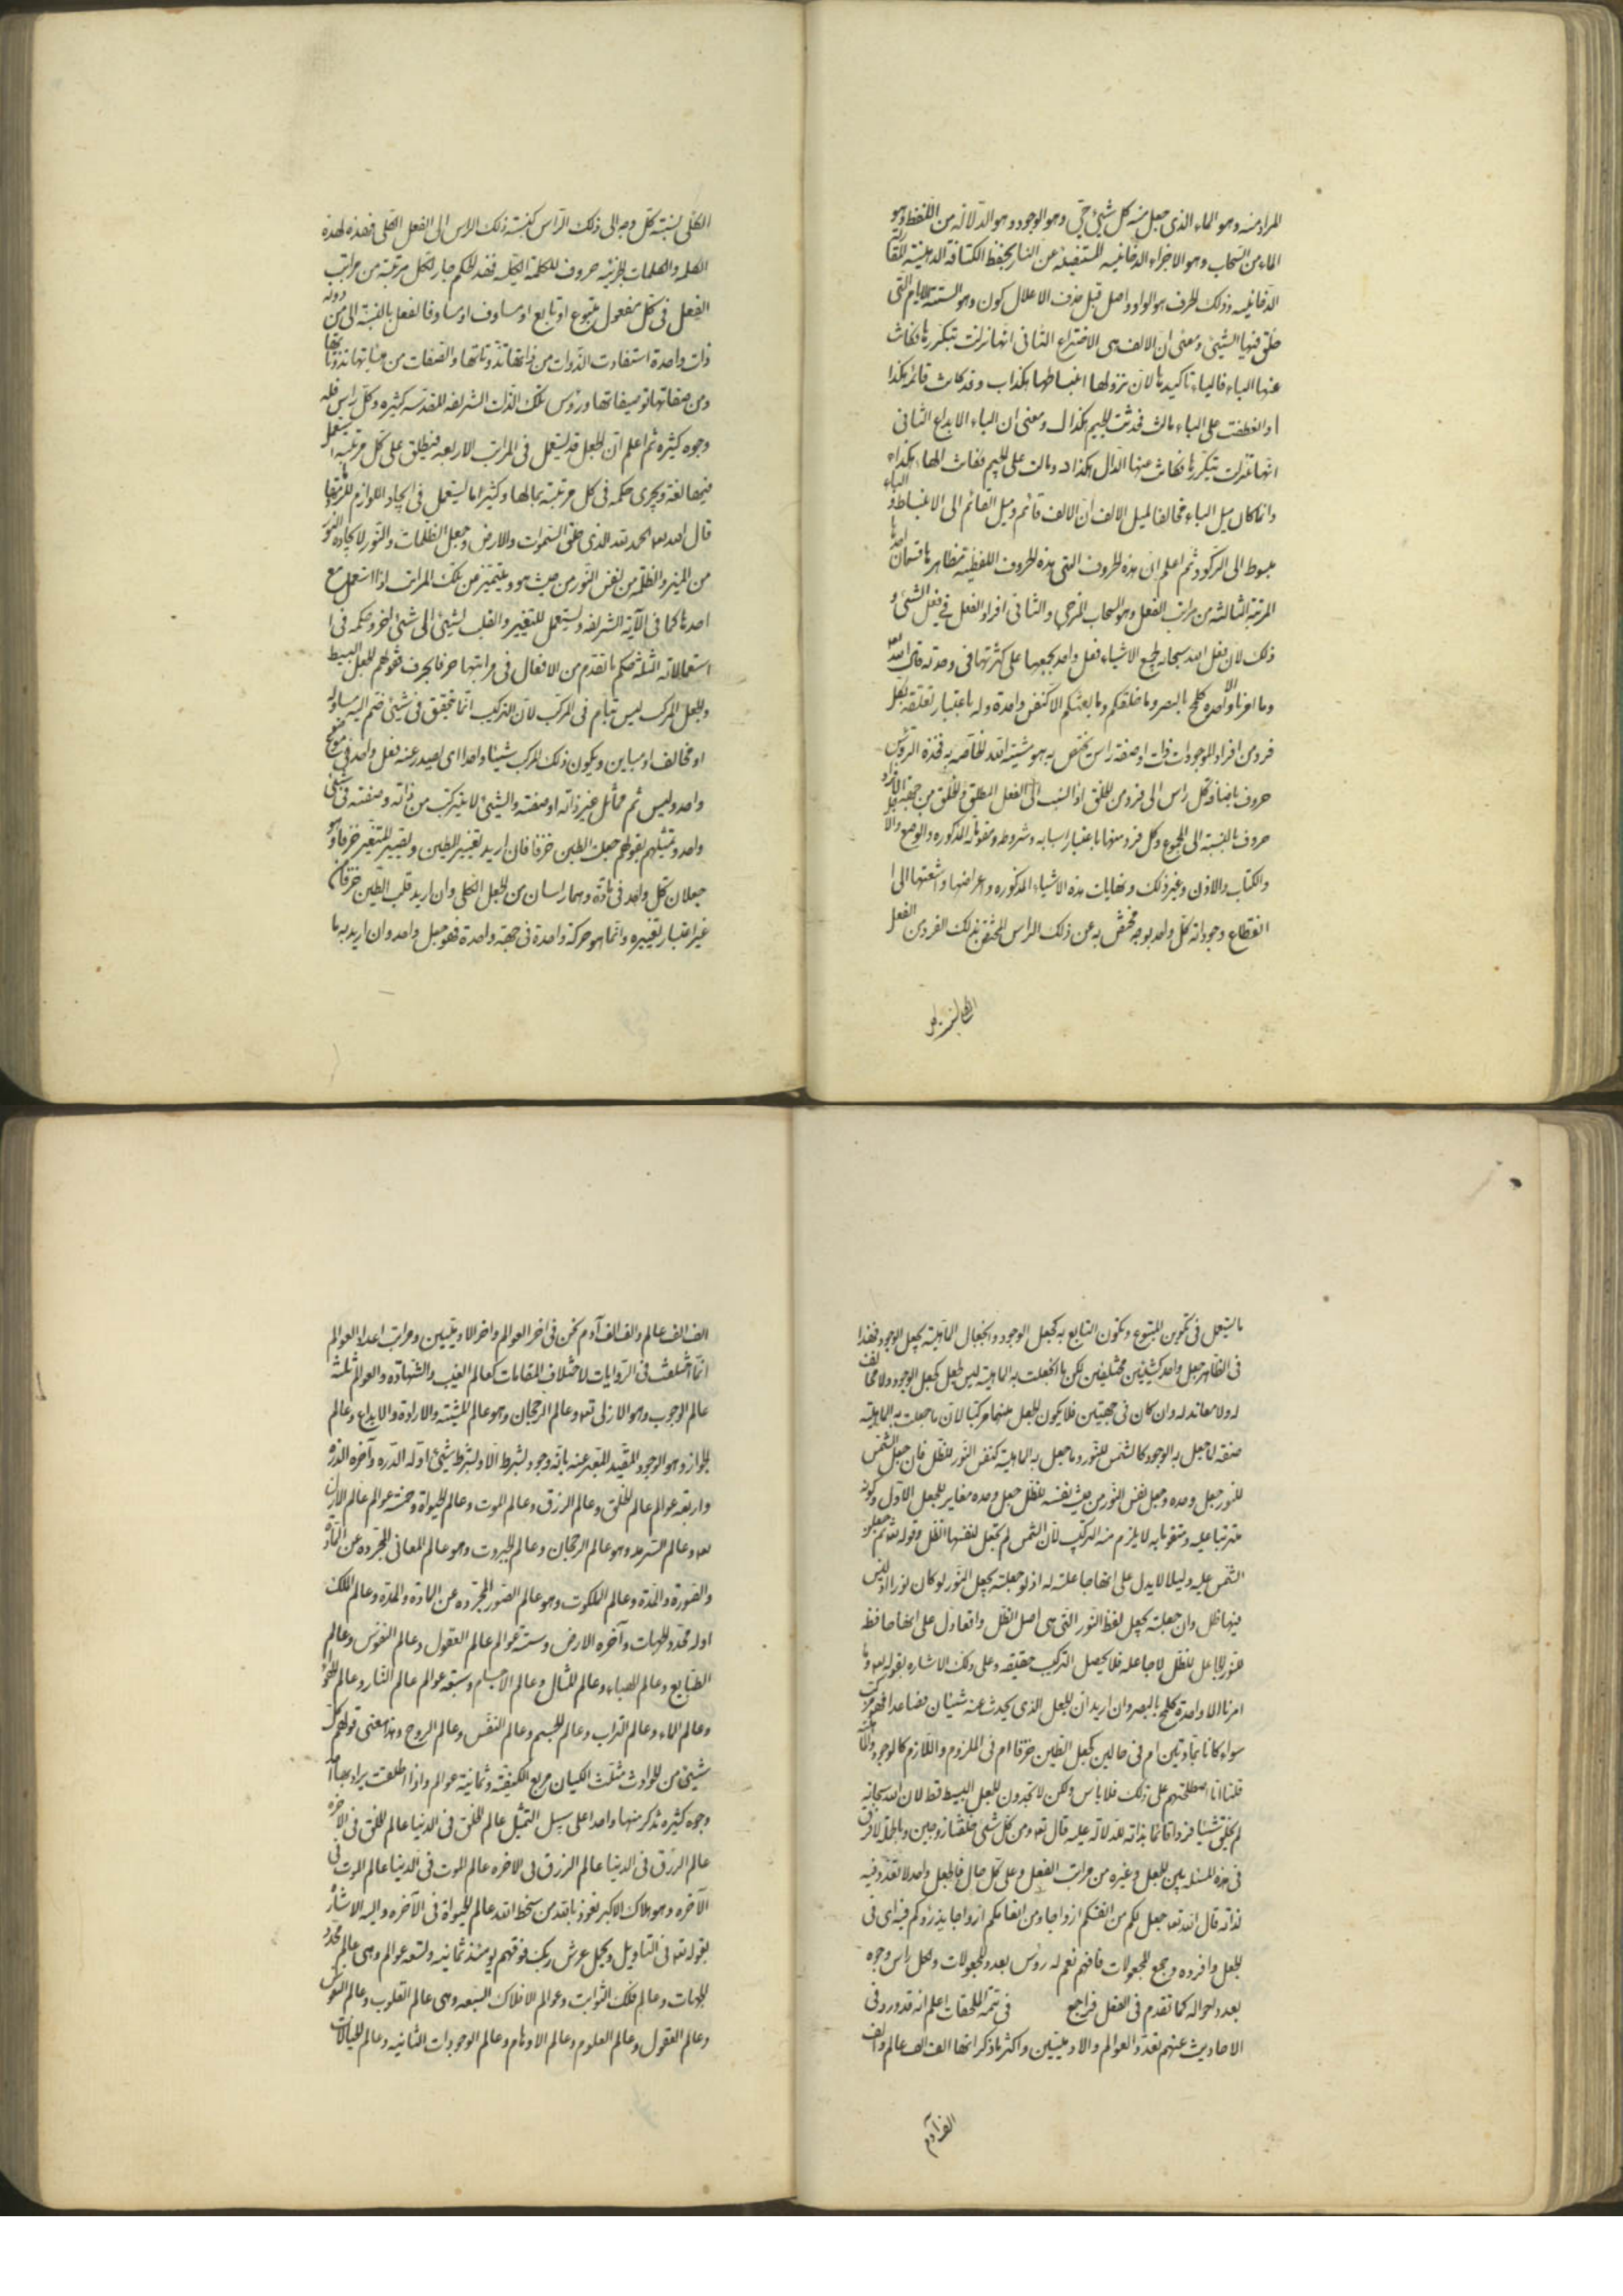 المراد منه وهو الماء الذي جعل منه كل شيئ حيّ وهو الوجود وهو الدلالة من اللفظ وهو
الماء من السحاب وهو الاجزاء الدخانية المستضيئة عن النار بحفظ الكثافة الدهنية للقا
الدخانية وذلك الحرف هو الواو واصل قبل حذف الاعلال كون وهو الستة الايام التي
خلق فيها الشيئ ومعنى ان الالف هي الاختراع الثاني انها نزلت بتكررها فكانت
عنها الباء فالباء تاكيدها لان نزولها انبساطها هكذا ب وقد كانت قائمة هكذا
ا وانعطفت على الباء مالت فحدثت الجيم هكذا ل ومعنى ان الباء الابداع الثاني
انها تنزلت بتكررها فكانت عنها الدال هكذا د ومالت على الجيم فكانت الهاء هكذا ه
وانما كان ميل الباء مخالفا لميل الالف لان الالف قائم وميل القائم الى الانبساط و الباء
مبسوط الى الركود ثم اعلم ان هذه الحروف التي هذه الحروف اللفظية مظاهرها قسمان احدها
المرتبة الثالثة من مراتب الفعل وهو السحاب المزجي والثاني افراد الفعل في فعل الشيئ و
ذلك لان فعل الله سبحانه لجميع الاشياء فعل واحد يجمعها على كثرتها في وحدته قال الله تعه
وما امرنا الا واحدة كلمح بالبصر وما خلقكم وما بعثكم الا كنفس واحدة وله باعتبار تعلقه بكل
فرد من افراد الموجودات ذات او صفة راس يختص به هو مشيئة الله الخاصة به فهذه الرؤس
حروف باضافة كل راس الى فرد من الخلق اذا انسب الى الفعل المطلق والخلق من جهة الافراد
حروف بالنسبة الى المجموع وكل فرد منها باعتبار اسبابه وشروطه ومقوماته المذكورة والوضع والا
والكتاب والاذن وغير ذلك ونهايات هذه الاشياء المذكورة واعراضها واشعتها الى ا
انقطاع وجوداته كل واحد بوجه مختص به عن ذلك الراس المختص بذلك الفرد من الفعل
الكلي نسبة كل وجه الى ذلك الراس كنسبة ذلك الراس الى الفعل الكلي فهذه لهذه
الكلمة والكلمات الجزئية حروف للكلمة الكلية فهذا الحكم جار لكل مرتبة من مراتب
الفعل في كل مفعول متبوع او تابع او مساوف او مساوقا لفعل بالنسبة الى من دونه
ذات واحدة استفادت الذوات من ذاتها تذوتاتها والصفات من هيئاتها تذوتا
ومن صفاتها توصيفاتها ورؤس تلك الذات الشريفة المقدسة كثيرة وكل راس فله
وجوه كثيرة ثم اعلم ان الجعل قد يستعمل في المراتب الاربعة فيطلق على كل مرتبة
فيها لغة ويجري حكمه في كل مرتبة بحالها وكثيرا ما يستعمل في ايجاد اللوازم
قال الله تعه الحمد لله الذي خلق السموات والارض وجعل الظلمات والنور لايجاده النور
من المنير والظلمة من نفس النور من حيث هو ويتميز من تلك المراتب اذا استعمل مع
احدها كما في الآية الشريفة ويستعمل للتغيير والقلب لشيئ الى شيئ اخر وحكمه في ا
استعمالاته الثلثة حكم ما تقدم من الافعال في مراتبها حرفا بحرف فقولهم الجعل البسيط
والجعل المركب ليس بتام في المركب لان التركيب انما يتحقق في شيئ ضم اليه مساو له
او مخالف او مباين ويكون ذلك المركب شيئا واحدا اي يصدر عنه فعل واحد في
واحد وليس ثم مماثل غير ذاته او صفته والشيئ لا يتركب من ذاته وصفته في شيئ
واحد وتمثيلهم بقولهم جعلت الطين خزفا فان اريد تغيير الطين وتصيير المتغير خزفا فهو
جعلان كل واحد في مادة وهما راسان من الجعل الكلي وان اريد قلب الطين خزفا من
غير اعتبار تغييره وانما هو حركة واحدة في جهة واحدة فهو جعل واحد وان اريد به ما
ما يستعمل في تكوين المتبوع وتكون التابع به كجعل الوجود وانجعال الماهية بجعل الوجود فهذا
في الظاهر جعل واحد لشيئين مختلفين لكن ما انجعلت به الماهية ليس جعل كجعل الوجود ولا مخالف
له ولا معاند له وان كان في جهتين فلا يكون الجعل منهما مركبا لان ما جعلت به الماهية
صفة لما جعل به الوجود كالشمس للنور وما جعل به الماهية كنفس النور للظل فان جعل الشمس
للنور جعل وحده وجعل نفس النور من حيث نفسه للظل جعل وحده مغاير للجعل الاول وكونه
مترتبا عليه ومتقوما به لا يلزم منه التركيب لان الشمس لم تجعل لنفسها الظل وقوله تعه ثم جعلنا
الشمس عليه دليلا لا يدل على انها جاعلة له اذ لو جعلته بجعل النور لو كان نورا اذ ليس
فيها ظل وان جعلته بجعل لفظ النور التي هي اصل الظل وانما دل على انها حافظة
للنور الجاعل للظل لا جاعلة فلا يحصل التركيب حقيقة وعلى ذلك الاشارة بقوله تعه وما
امرنا الا واحدة كلمح بالبصر وان اريد ان الجعل الذي يحدث عنه شيئان فصاعدا فهو مركب
سواء كانا بمادتين ام في حالين كجعل الطين خزفا ام في الملزوم واللازم كالوجود والماهية
قلنا اذا اصطلحتم على ذلك فلا باس ولكن لا تجدون للجعل البسيط قط لان الله سبحانه
لم يخلق شيئا فردا قائما بذاته للدلالة عليه قال تعه ومن كل شيئ خلقنا زوجين وبالجملة لا فرق
في هذه المسئلة بين الجعل وغيره من مراتب الفعل وعلى كل حال فالجعل واحد لا تعدد فيه
لذاته قال الله تعه جعل لكم من انفسكم ازواجا ومن انعامكم ازواجا يذرؤكم فيه اي في
الجعل وافرده وجمع المجعولات فافهم نعم له رؤس بعدد المجعولات ولكل راس وجوه
بعدد احواله كما تقدم في الفعل فراجع في تتمة الملحقات اعلم انه قد ورد في
الاحاديث عنهم تعدد العوالم والادميين واكثر ما ذكر انها الف الف عالم والف
الف آدم
الف الف عالم والف الف آدم نحن في آخر العوالم واخر الادميين ومراتب اعداد العوالم
انما اختلفت في الروايات لاختلاف المقامات كعالم الغيب والشهادة والعوالم ثلثة
عالم الوجوب وهو الازل تعه وعالم الرجحان وهو عالم المشيئة والارادة والابداع وعالم
الجواز وهو الوجود المقيد المعبر عنه بانه وجود بشرط لا ولشرط شيئ اوله الدرة وآخره الذرة
واربعة عوالم عالم الخلق وعالم الرزق وعالم الموت وعالم الحيوة وخمسة عوالم عالم الازل
تعه وعالم السرمد وهو عالم الرجحان وعالم الجبروت وهو عالم المعاني المجردة عن المادة
والصورة والمدة وعالم الملكوت وهو عالم الصور المجردة عن المادة والمدة وعالم الملك
اوله محدد الجهات وآخره الارض وستة عوالم عالم العقول وعالم النفوس وعالم
الطبايع وعالم الهباء وعالم المثال وعالم الاجسام وسبعة عوالم عالم النار وعالم الهواء
وعالم الماء وعالم التراب وعالم الجسم وعالم النفس وعالم الروح وهذا معنى قولهم كل
شيئ من الحوادث مثلث الكيان مربع الكيفية وثمانية عوالم واذا اطلقت يراد بها احد
وجوه كثيرة نذكر منها واحدا على سبيل التمثيل عالم الخلق في الدنيا عالم الخلق في الآخرة
عالم الرزق في الدنيا عالم الرزق في الاخرة عالم الموت في الدنيا عالم الموت في
الآخرة وهو هلاك الاكبر نعوذ بالله من سخط الله عالم الحيوة في الآخرة واليه الاشارة
بقوله تعه في التاويل ويحمل عرش ربك فوقهم يومئذ ثمانية وتسعة عوالم وهي عالم محدد
الجهات وعالم فلك الثوابت وعوالم الافلاك السبعة وهي عالم القلوب وعالم النفوس
وعالم العقول وعالم العلوم وعالم الاوهام وعالم الوجودات الثانية وعالم الخيالات